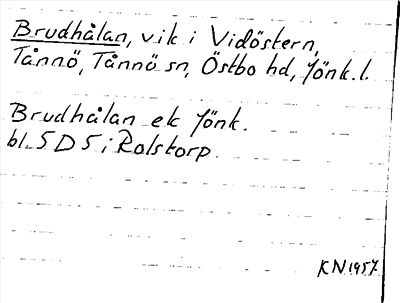 Brudhålan, vik i Vidöstern,
Tånnö, Tånnö sn, Östbo hd, Jönk.l.
Brudhålan ek Jönk.
bl. 5 D 5 i Rolstorp
KN 1957